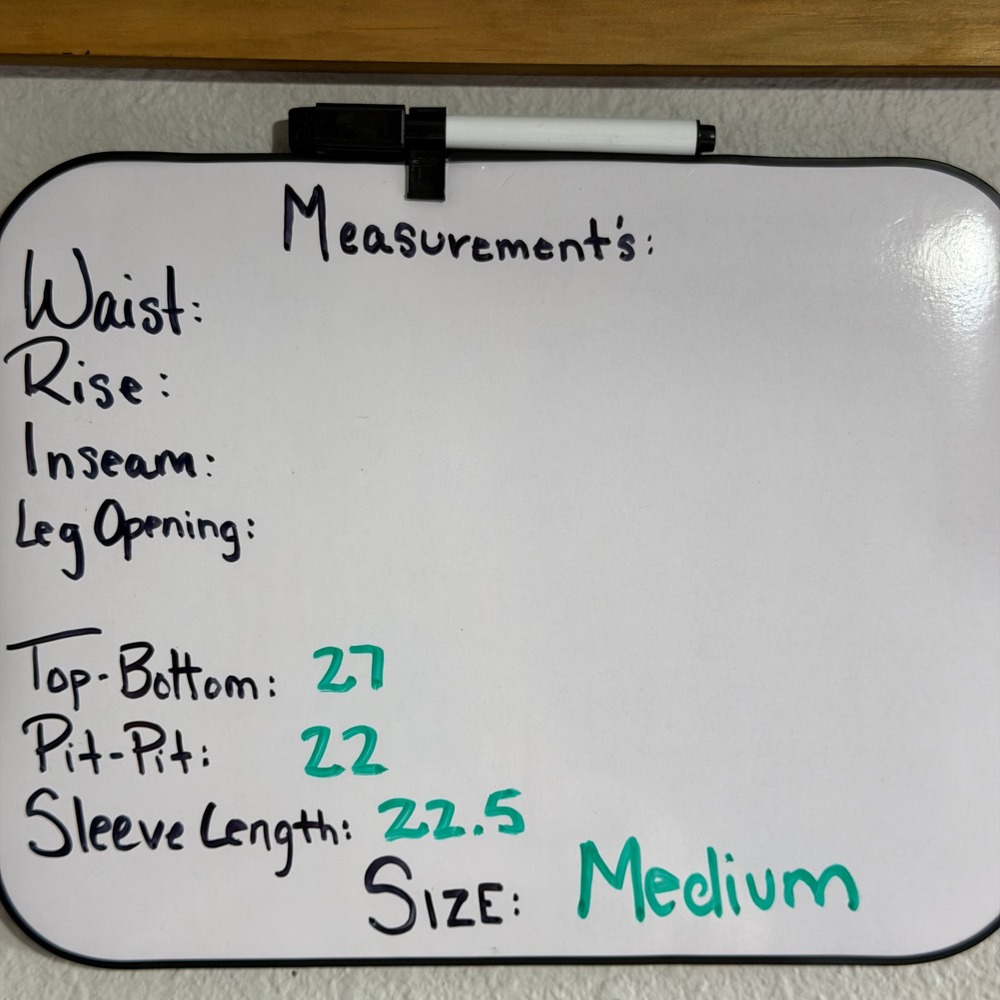 Measurement's:
Waist:
Rise:
Inseam:
Leg Opening:
Top-Bottom: 27
Pit-Pit: 22
Sleeve Length: 22.5
SIZE: Medium